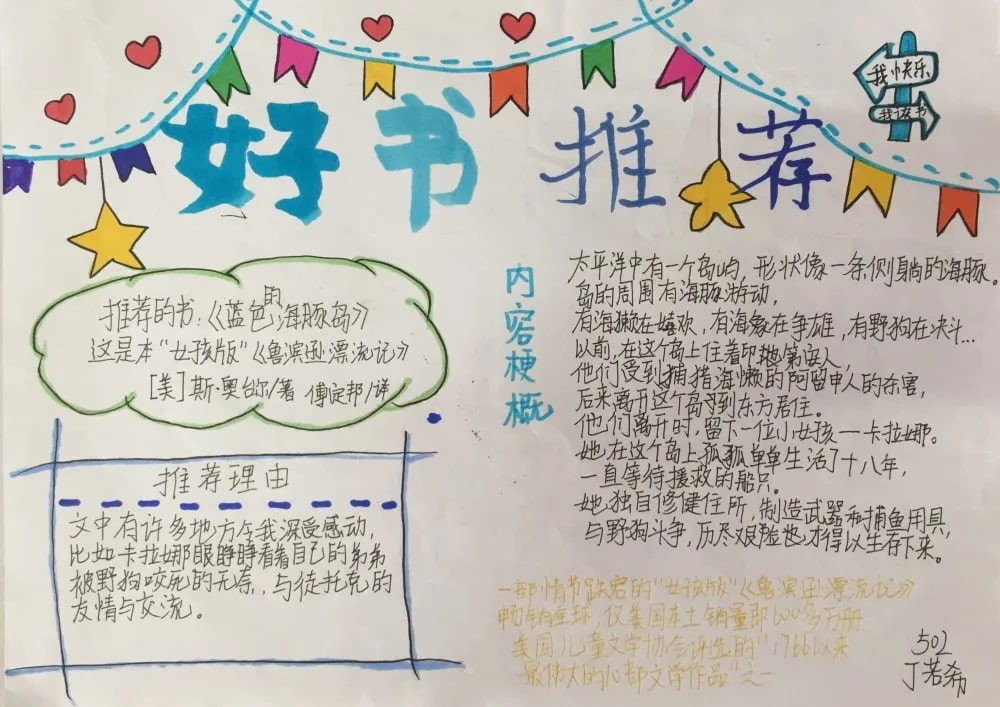 我快乐
我读书
好书推荐
推荐的书：《蓝色的海豚岛》
这是本“女孩版”《鲁滨逊漂流记》
[美]斯·奥台尔/著 傅定邦/译
推荐理由
文中有许多地方令我深受感动，
比如卡拉娜眼睁睁看着自己的弟弟
被野狗咬死的无奈，与徒托克的
友情与交流。
内容梗概
太平洋中有一个岛屿，形状像一条侧躺的海豚。
岛的周围有海豚游动，
有海獭在嬉欢，有海象在争雄，有野狗在决斗...
以前，在这个岛上住着印地第安人，
他们受到捕猎海懒的阿留申人的杀害，
后来离开这个岛到东方居住。
他们离开时，留下一位小女孩一卡拉娜。
她在这个岛上孤孤单单生活了十八年，
一直等待援救的船只。
她独自修健住所，制造武器和捕鱼用具，
与野狗斗争，历尽艰险也才得以生存下来。
一部情节跌宕的“女孩版”《鲁滨逊漂流记》
畅销全球，仅美国本土销量即600多万册
美国儿童文学协会评选的“1766以来
最伟大的10部文学作品”之一
502
丁若希